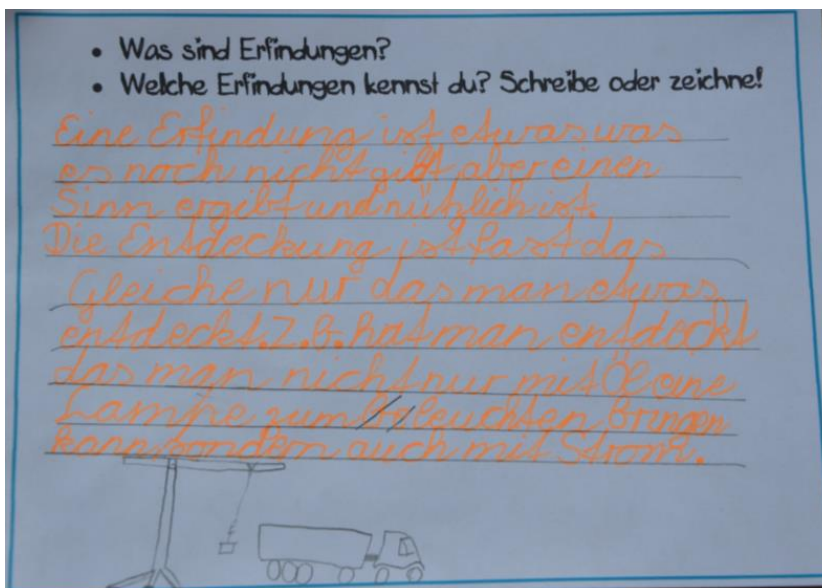 • Was sind Erfindungen?
• Welche Erfindungen kennst du? Schreibe oder zeichne!
Eine Erfindung ist etwas was
es noch nicht gibt aber einen
Sinn ergibt und nützlich ist.
Die Entdeckung ist fast das
Gleiche nur das man etwas
entdeckt. Z.B. hat man entdeckt
das man nicht nur mit Öl eine
Lampe zum leuchten Bringen
kann sondern auch mit Strom.